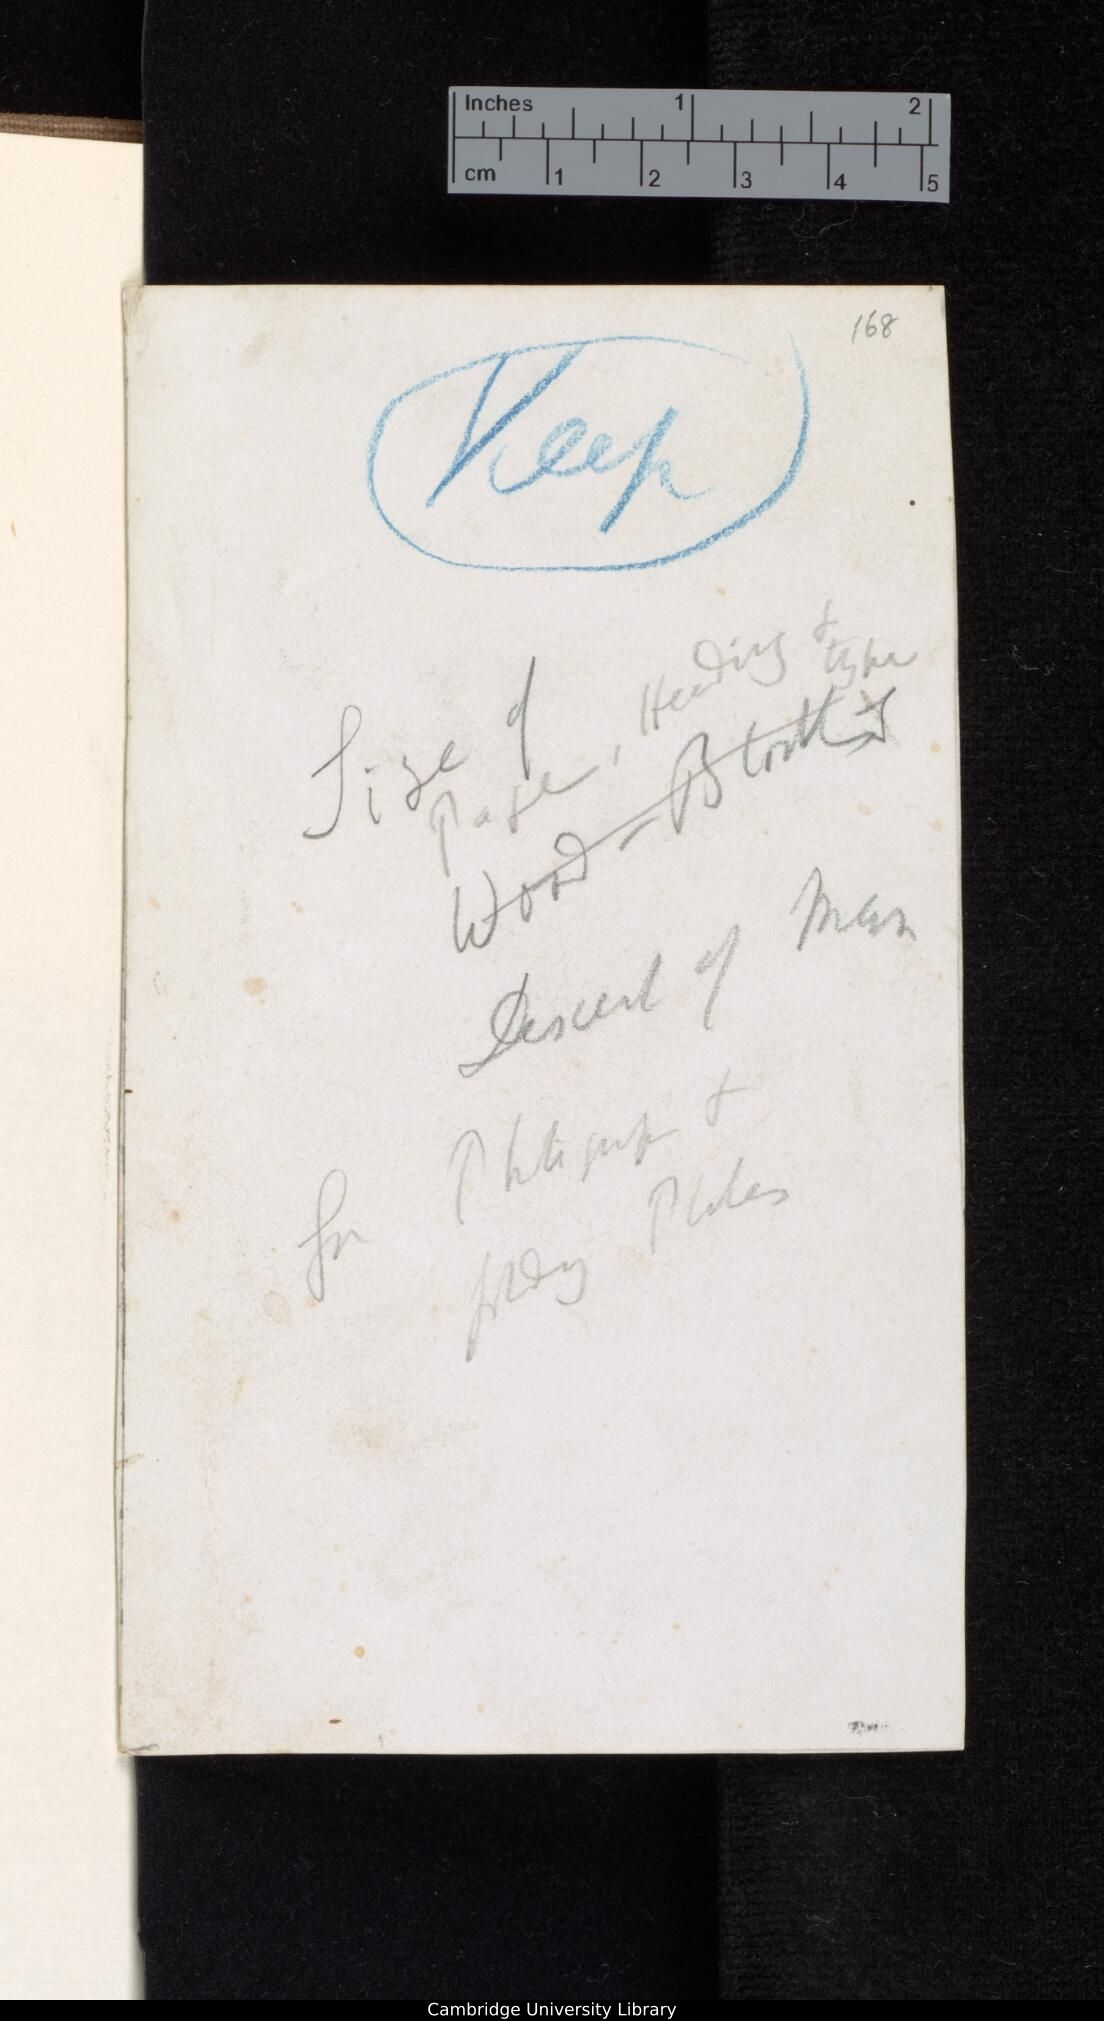 Inches 1 2
cm 1 2 3 4 5
168
Keep
Size of
Page, Heading &
type
Wood-Blocks
Descent of Man
for Photograph &
folding Plates
Cambridge University Library